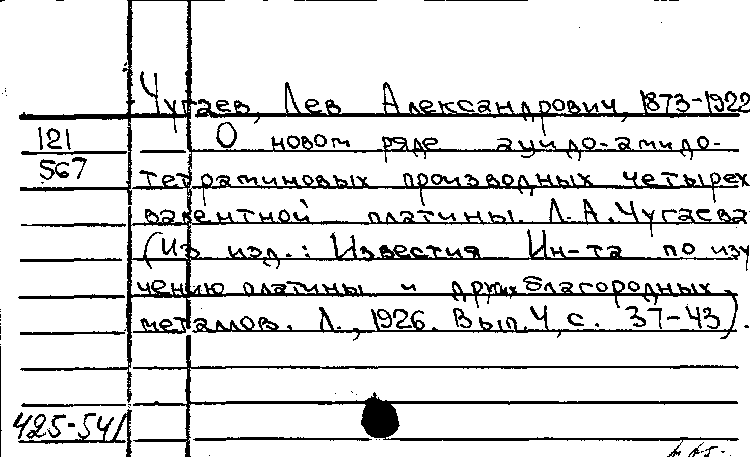 Чугаев, Лев Александрович, 1873-1922
121 О новом ряде ацидо-амидо-
567 тетраминовых производных четырех
валентной платины. Л.А.Чугаева
(Из изд.: Известия Ин-та по изу
чению платины и других благородных
металлов. Л., 1926. Вып.4, с. 37-43).
425-541